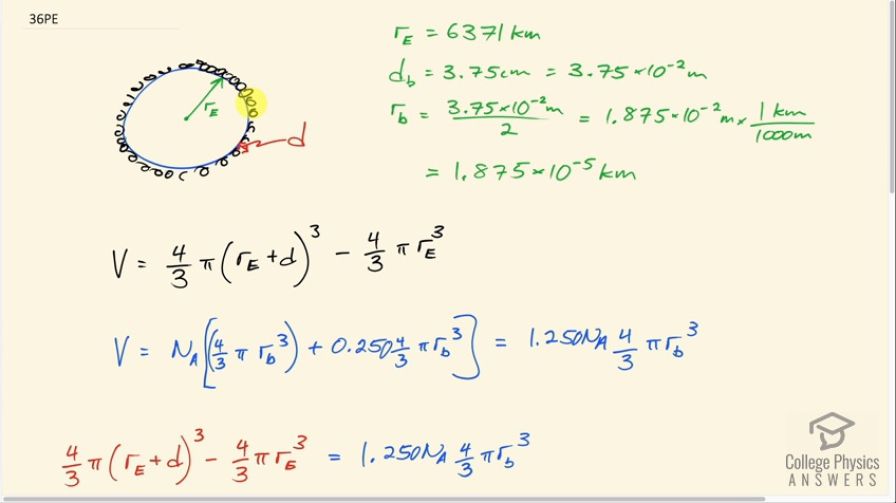 36PE
r_E = 6371 km
d_b = 3.75 cm = 3.75 × 10⁻² m
r_b = (3.75 × 10⁻² m)/2 = 1.875 × 10⁻² m × 1 km/1000 m
= 1.875 × 10⁻⁵ km
r_E
d
V = 4/3 π (r_E + d)³ − 4/3 π r_E³
V = N_A [(4/3 π r_b³) + 0.250 4/3 π r_b³] = 1.250 N_A 4/3 π r_b³
4/3 π (r_E + d)³ − 4/3 π r_E³ = 1.250 N_A 4/3 π r_b³
College Physics
ANSWERS